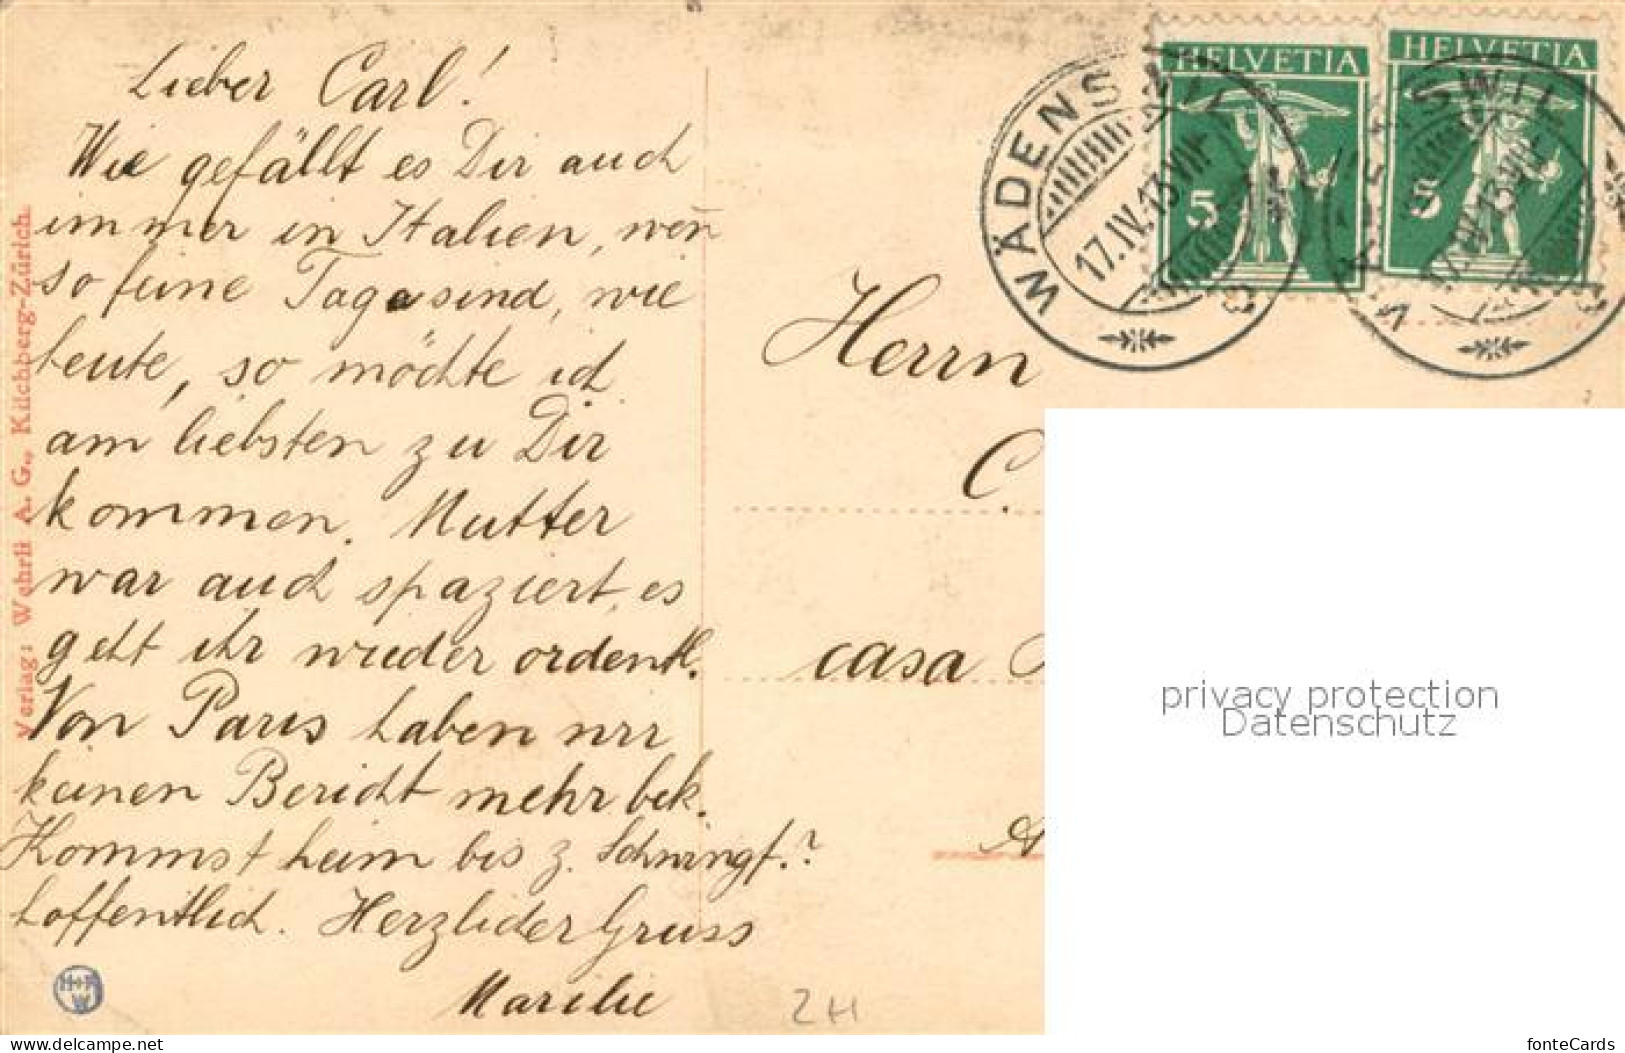 Lieber Carl!
Wie gefällt es Dir auch
immer in Italien, weñ
so feine Tage sind, wie
heute, so möchte ich
am liebsten zu Dir
kommen. Mutter
war auch spaziert, es
geht ihr wieder ordentl.
Von Paris haben wir
keinen Bericht mehr bek.
Kommst heim bis z. Schwingf.?
hoffentlich. Herzlicher Gruss
Marilie
Verlag: Wehrli A. G., Kilchberg-Zürich.
HELVETIA
5
HELVETIA
5
WÄDENSWIL
17.IV.13.VII-
WÄDENSWIL
17.IV.13.VII-
Herrn
C.
casa
ZH
privacy protection
Datenschutz
www.delcampe.net
fonteCards